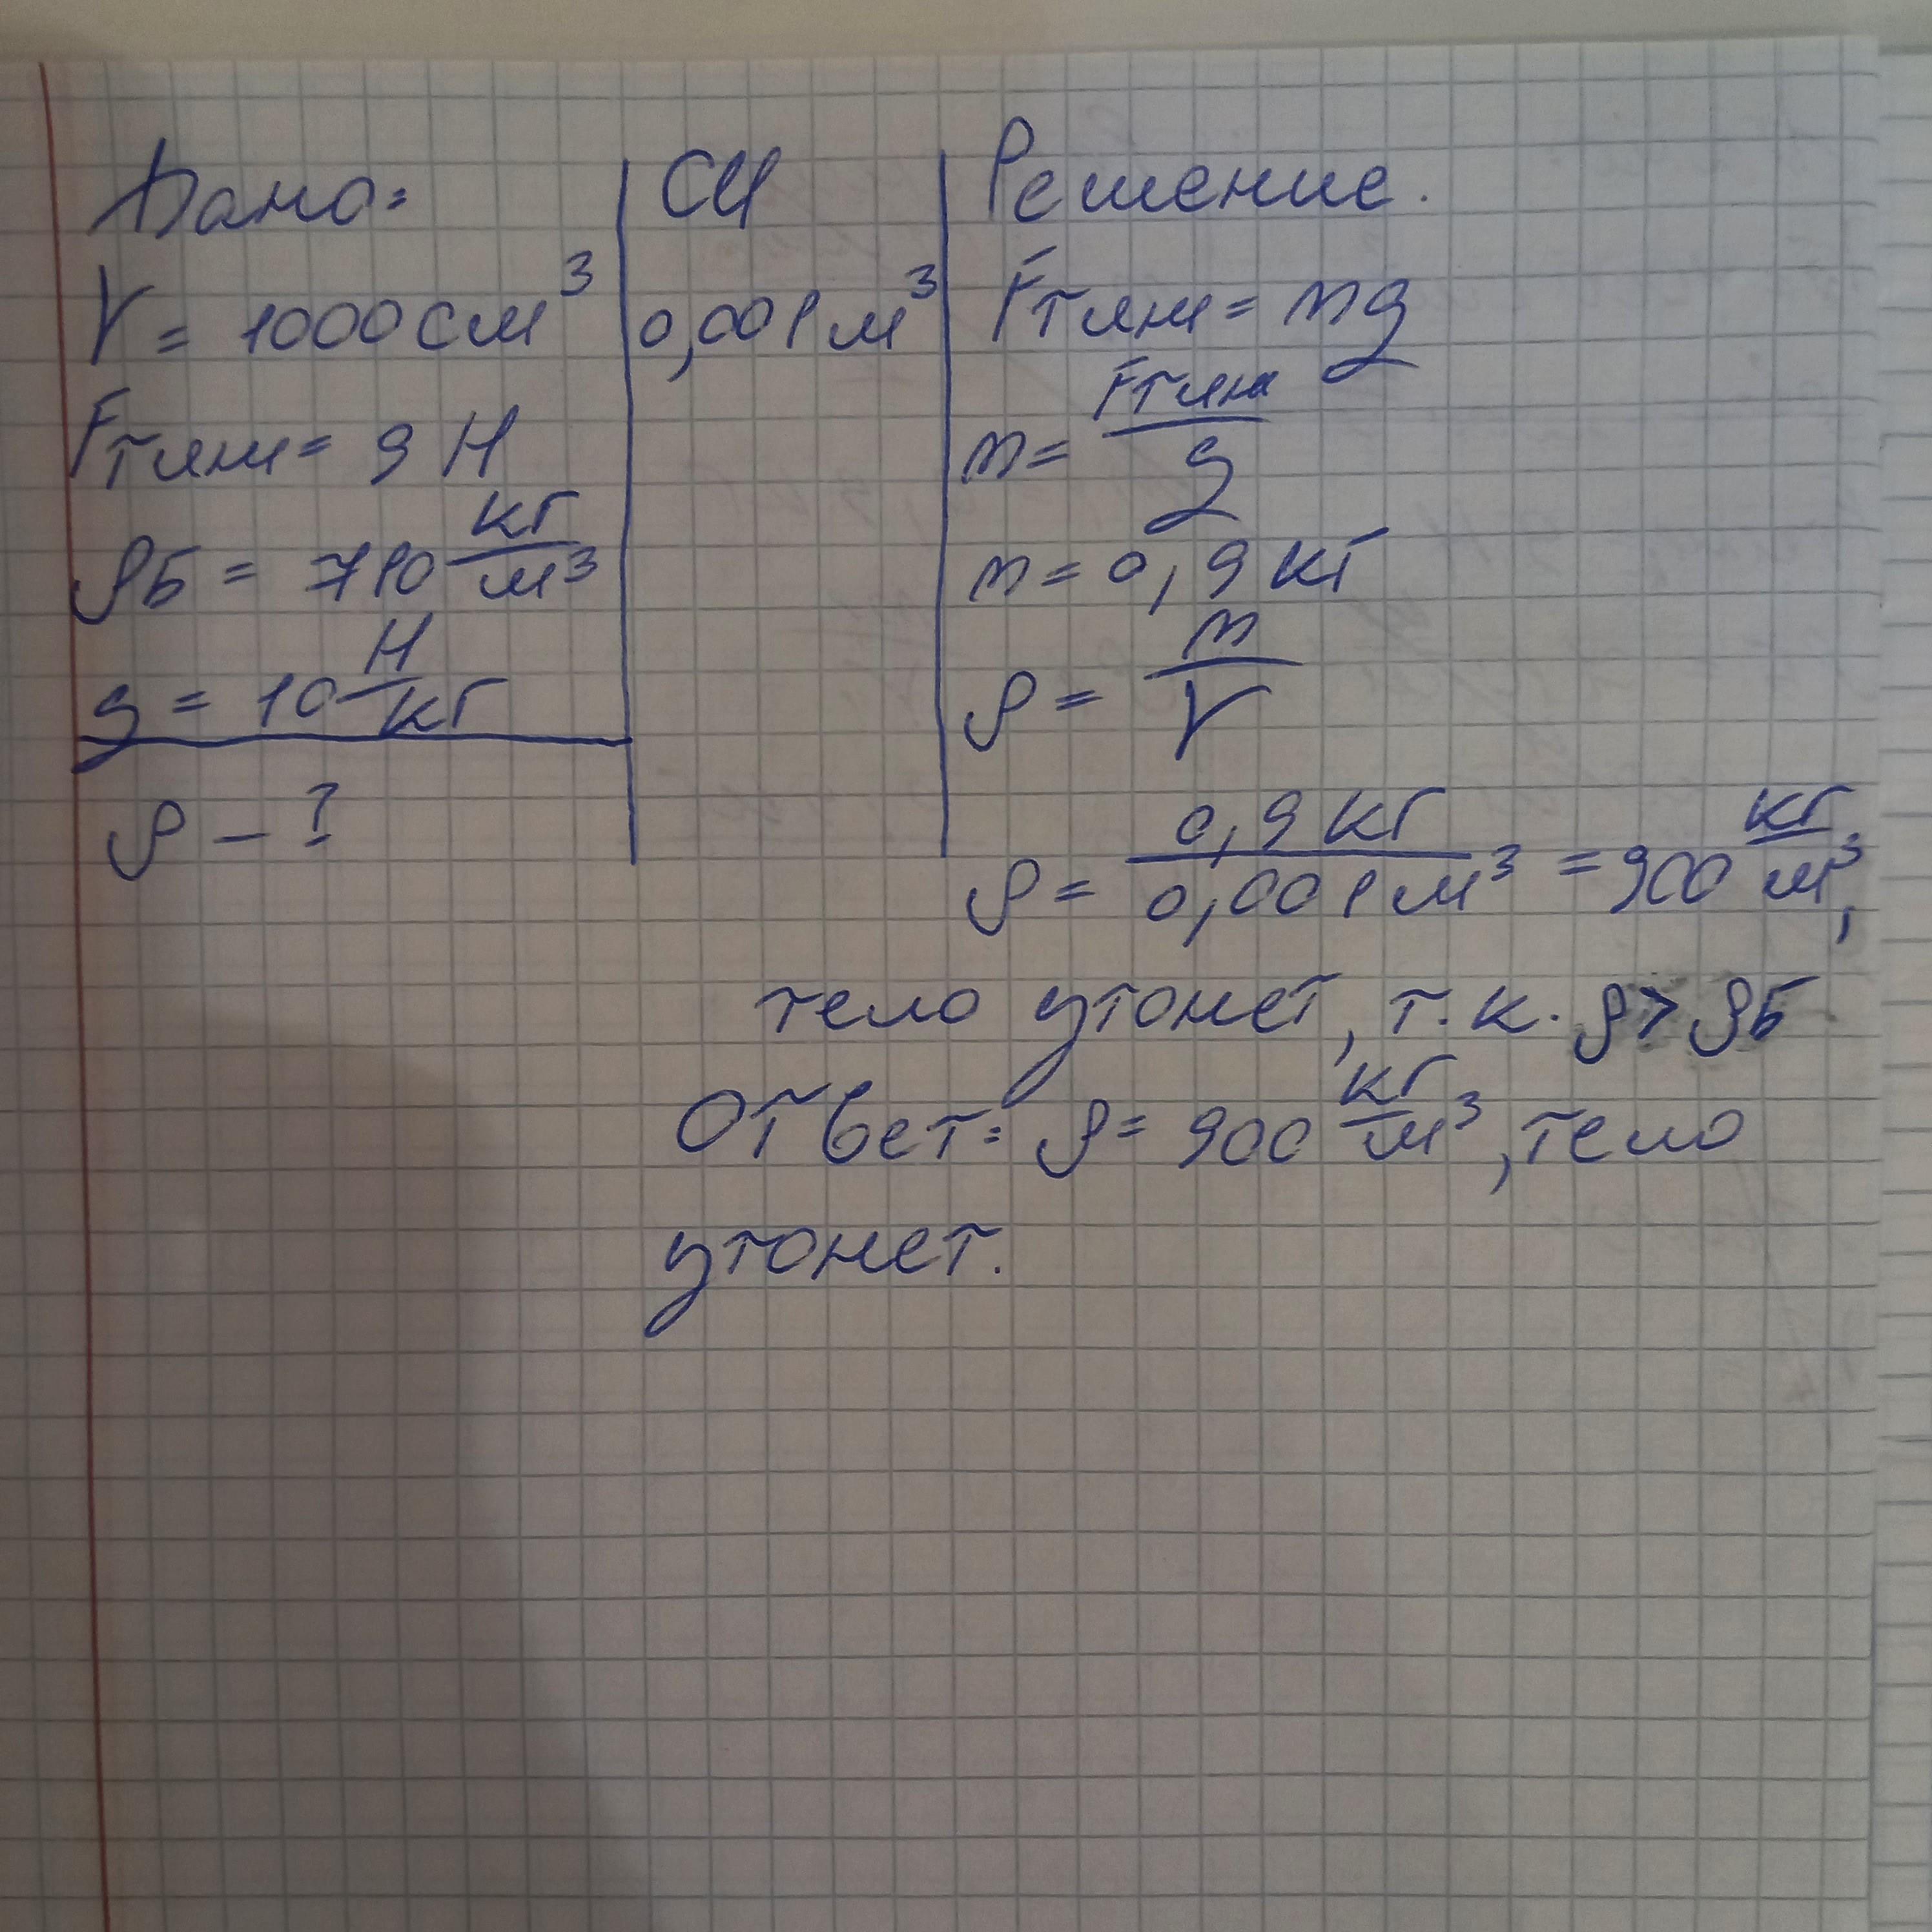 Дано:
V = 1000 см³
Fтяж = 9 Н
ρБ = 710 кг/м³
g = 10 Н/кг
ρ – ?
СИ
0,001 м³
Решение.
Fтяж = mg
m = Fтяж/g
m = 0,9 кг
ρ = m/V
ρ = 0,9 кг/0,001 м³ = 900 кг/м³,
тело утонет, т.к. ρ > ρБ
Ответ: ρ = 900 кг/м³, тело
утонет.